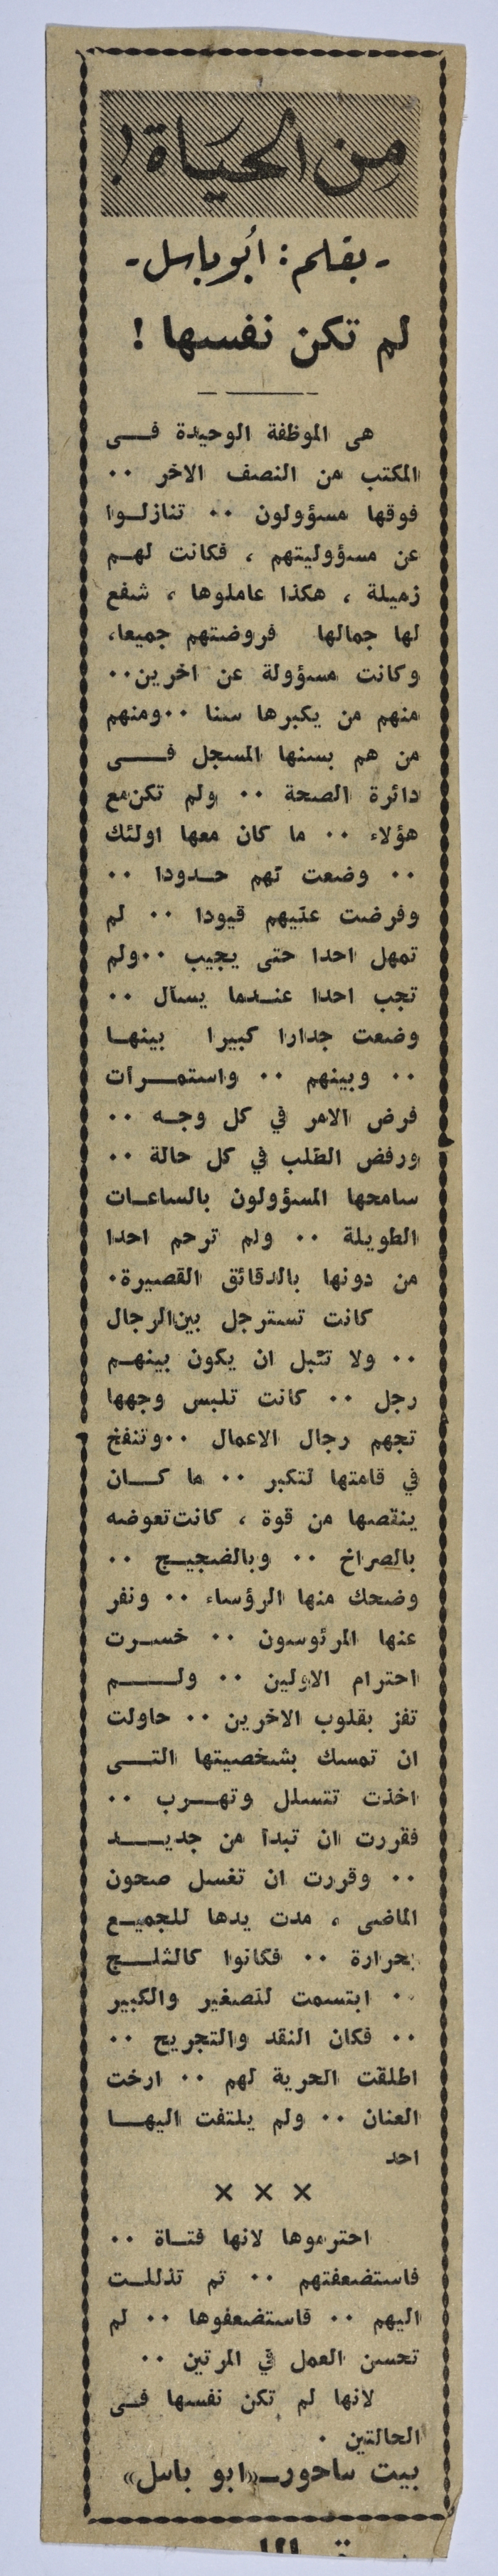 من الحياة !
- بقلم : أبو باسل -
لم تكن نفسها !
هي الموظفة الوحيدة فـــي
المكتب من النصف الاخر ٠٠
فوقها مسؤولون ٠٠ تنازلـوا
عن مسؤوليتهم ، فكانت لهـم
زميلة ، هكذا عاملوها ، شفع
لها جمالها فروضتهم جميعا،
وكانت مسؤولة عن اخرين٠٠
منهم من يكبرها سنا ٠٠ومنهم
من هم بسنها المسجل فـــى
دائرة الصحة ٠٠ ولم تكن مع
هؤلاء ٠٠ ما كان معها اولئك
٠٠ وضعت لهم حـدودا ٠٠
وفرضت عليهم قيودا ٠٠ لم
تمهل احدا حتى يجيب ٠٠ولم
تجب احدا عنـدما يسأل ٠٠
وضعت جدارا كبيرا بينهـا
٠٠ وبينهم ٠٠ واستمـــرات
فرض الامر في كل وجـه ٠٠
ورفض الطلب في كل حالة ٠٠
سامحها المسؤولون بالساعـات
الطويلة ٠٠ ولم ترحم احدا
من دونها بالدقائق القصيرة٠
كانت تسترجل بين الرجال
٠٠ ولا تقبل ان يكون بينهـم
رجل ٠٠ كانت تلبس وجهها
تجهم رجال الاعمال ٠٠وتنفخ
في قامتها لتكبر ٠٠ ما كــان
ينقصها من قوة ، كانت تعوضه
بالصراخ ٠٠ وبالضجيـج ٠٠
وضحك منها الرؤساء ٠٠ ونفر
عنها المرئوسون ٠٠ خسـرت
احترام الاولين ٠٠ ولـــم
تفز بقلوب الاخرين ٠٠ حاولت
ان تمسك بشخصيتها التـــى
اخذت تتسلل وتهـــرب ٠٠
فقررت ان تبدأ من جديـــد
٠٠ وقررت ان تغسل صحون
الماضى ، مدت يدها للجميـع
بحرارة ٠٠ فكانوا كالثلــج
٠٠ ابتسمت للصغير والكبير
٠٠ فكان النقد والتجريح ٠٠
اطلقت الحرية لهم ٠٠ ارخت
العنان ٠٠ ولم يلتفت اليهـا
احد
× × ×
احترموها لانها فتـاة ٠٠
فاستضعفتهم ٠٠ ثم تذللـت
اليهم ٠٠ فاستضعفوها ٠٠ لم
تحسن العمل في المرتين ٠٠
لانها لم تكن نفسها فـى
الحالتين ٠
بيت ساحور ـ «ابو باسل»